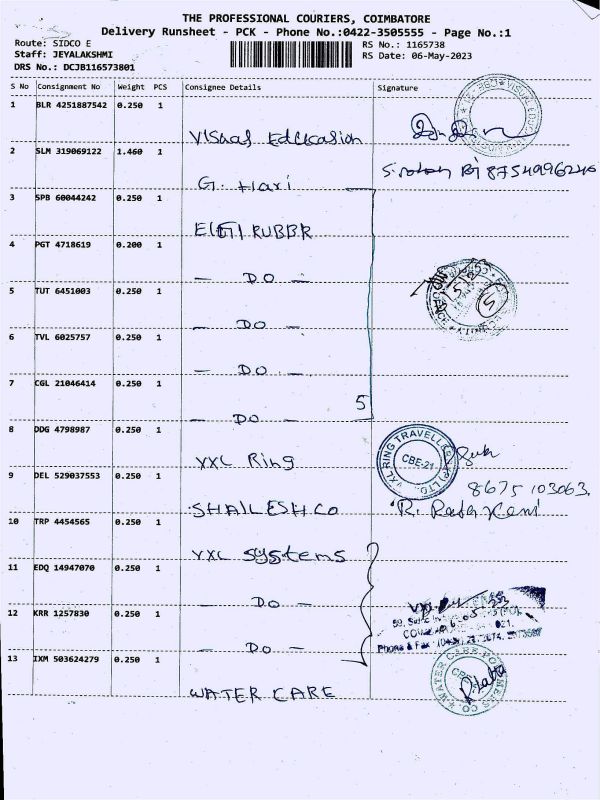 THE PROFESSIONAL COURIERS, COIMBATORE
Delivery Runsheet - PCK - Phone No.:0422-3505555 - Page No.:1
Route: SIDCO E
Staff: JEYALAKSHMI
DRS No.: DCJB116573801
RS No.: 1165738
RS Date: 06-May-2023
S No Consignment No Weight PCS Consignee Details Signature
1 BLR 4251887542 0.250 1
Visual Education
2 SLM 319069122 1.460 1
8754996246
G. Hari
3 SPB 60044242 0.250 1
ELGI RUBBR
4 PGT 4718619 0.200 1
— DO —
5 TUT 6451003 0.250 1
— DO —
6 TVL 6025757 0.250 1
— DO —
7 CGL 21046414 0.250 1
5
— DO —
8 DDG 4798987 0.250 1
VXL RING TRAVELLE
CBE-21
VXL Ring
9 DEL 529037553 0.250 1
8675103063.
SHAILESH CO
10 TRP 4454565 0.250 1
VXL systems
11 EDQ 14947070 0.250 1
— DO —
12 KRR 1257830 0.250 1
Phone & Fax
— DO —
13 IXM 503624279 0.250 1
WATER CARE
WATER CARE